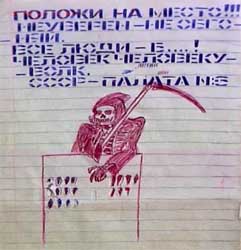 ПОЛОЖИ НА МЕСТО!!!
НЕУВЕРЕН-НЕ ОБГО-
НЯЙ.
ВСЕ ЛЮДИ - Б....!
ЧЕЛОВЕК ЧЕЛОВЕКУ-
-ВОЛК.
СССР-ПАЛАТА №6